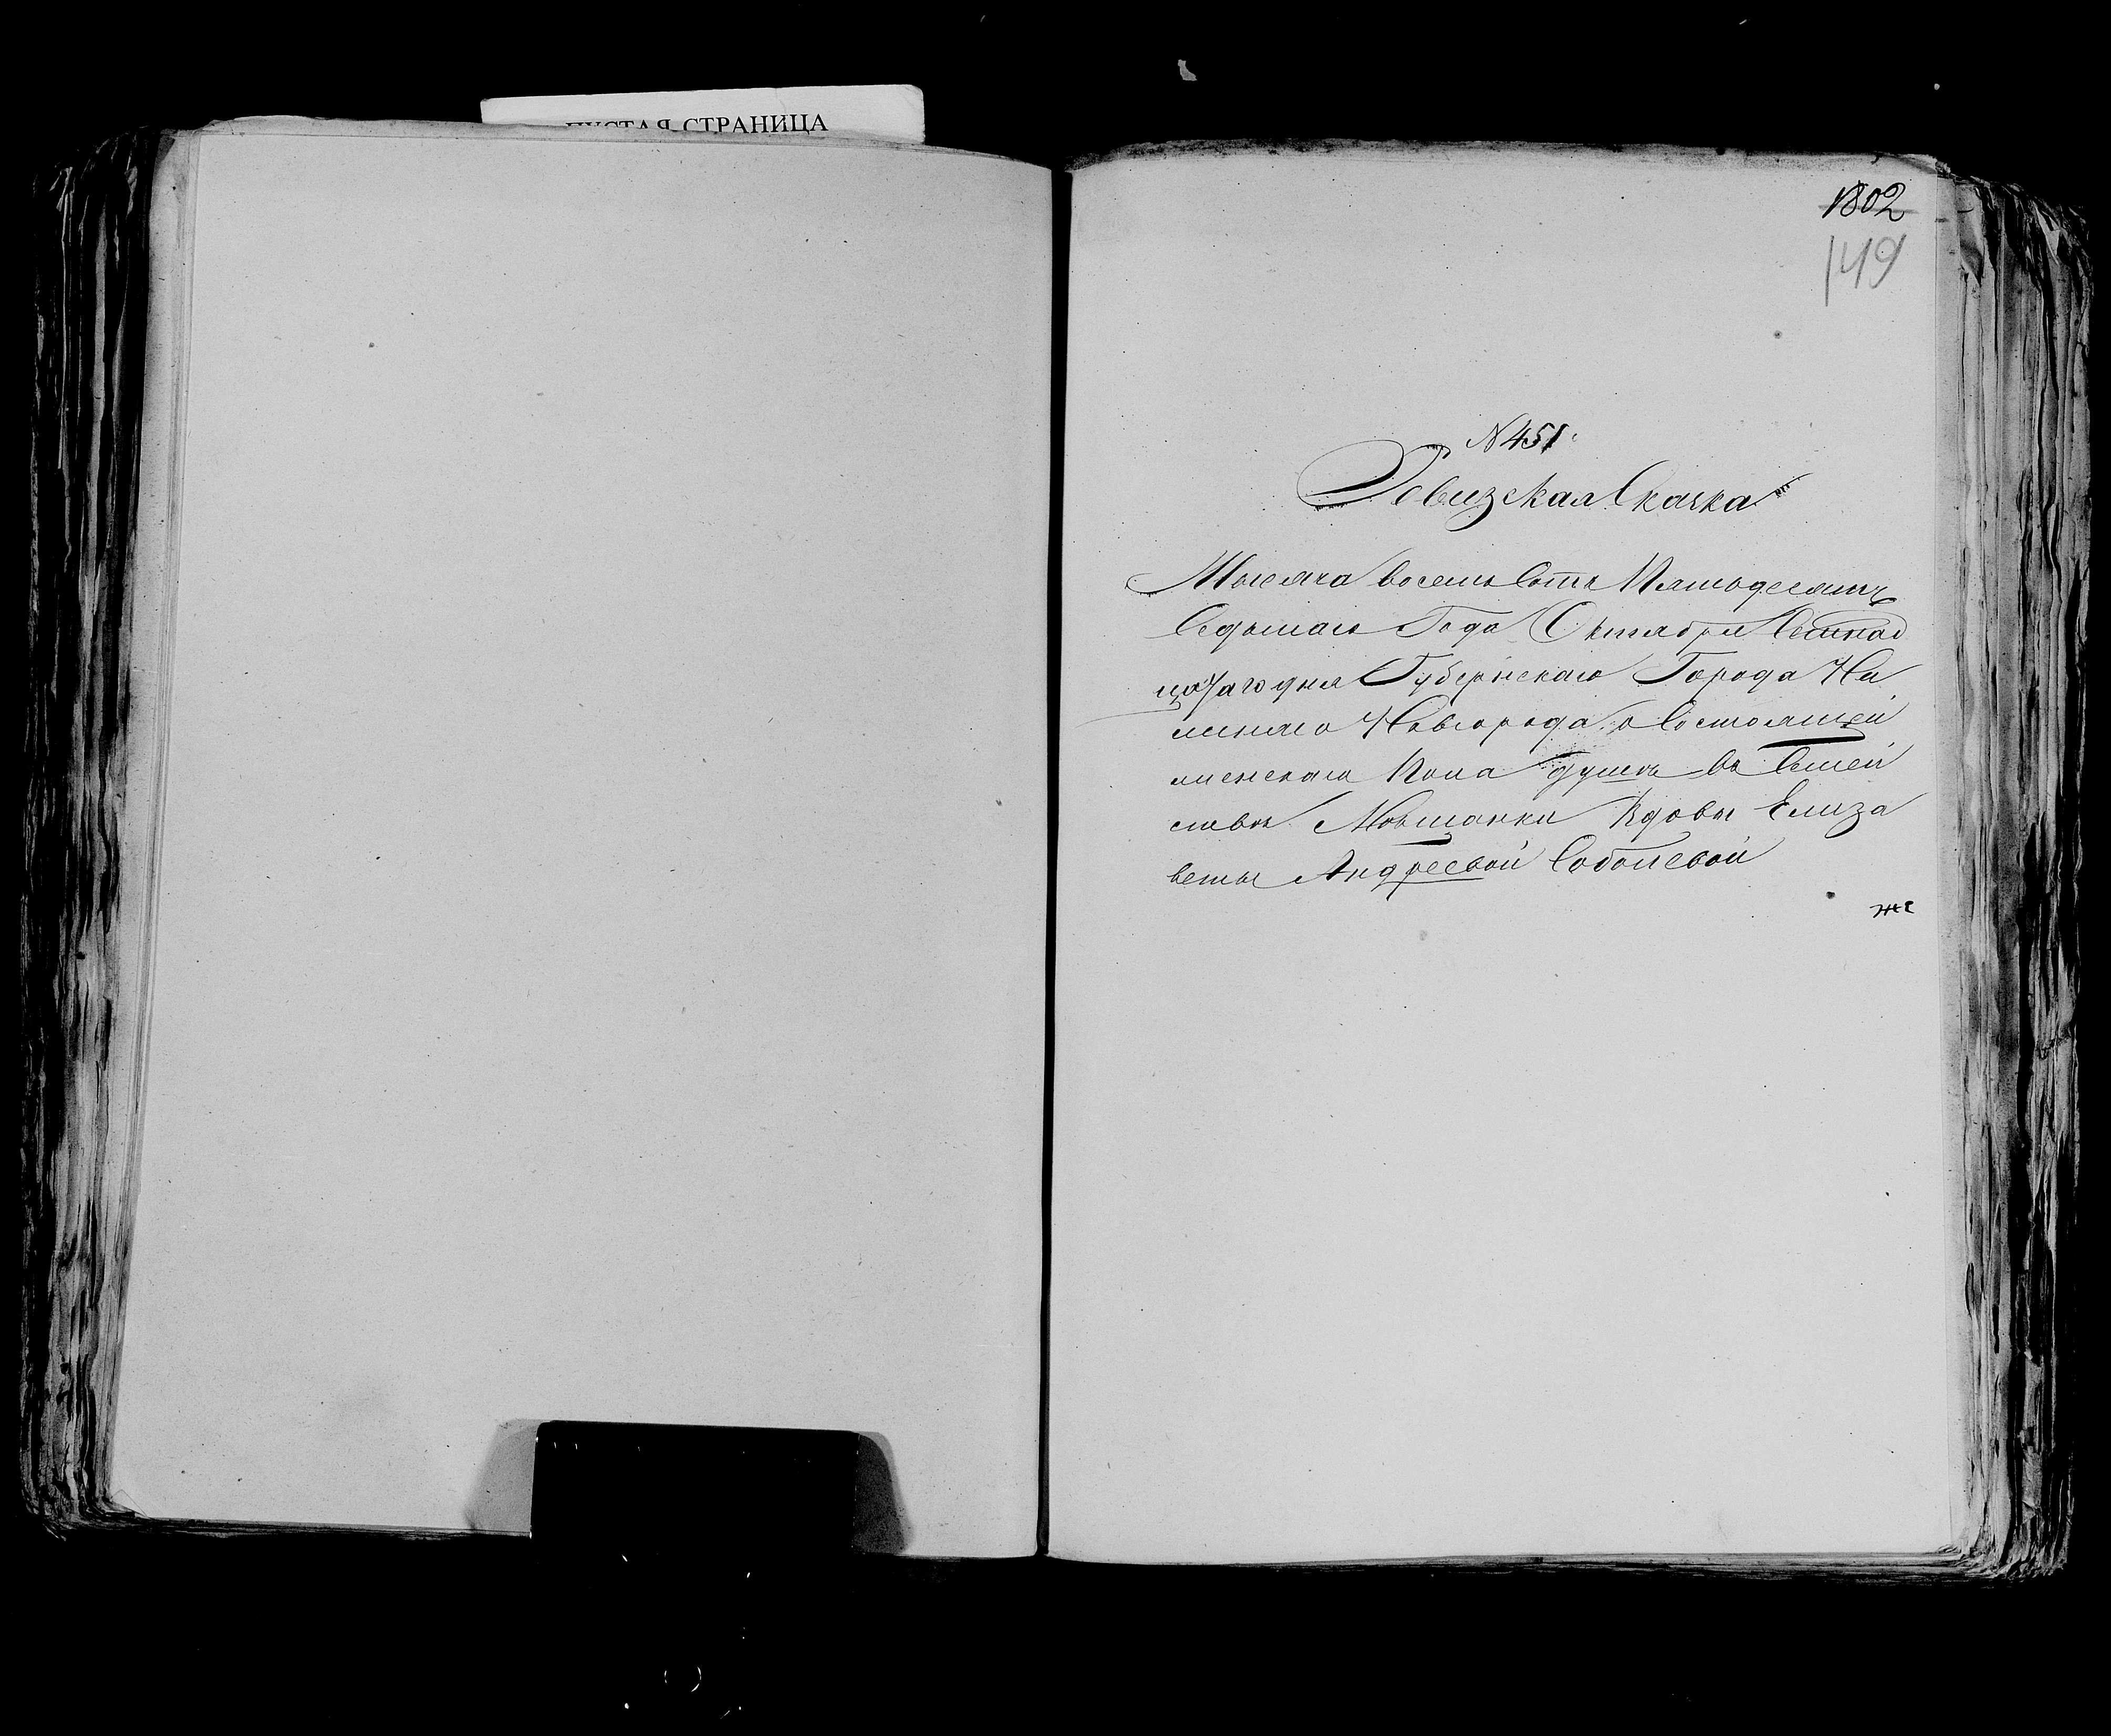 ПУСТАЯ СТРАНИЦА
1802
149
№ 451
Ревизская Сказка
Тысяча восемь Сотъ Пятьдесятъ
Седьмаго Года Октября Семнад
цатаго дня Губернскаго Города Ни
жняго Новгорода о Состоящей
женскаго Пола душъ въ Семей
ствѣ Мѣщанки Вдовы Елиза
веты Андреевой Соболевой
же